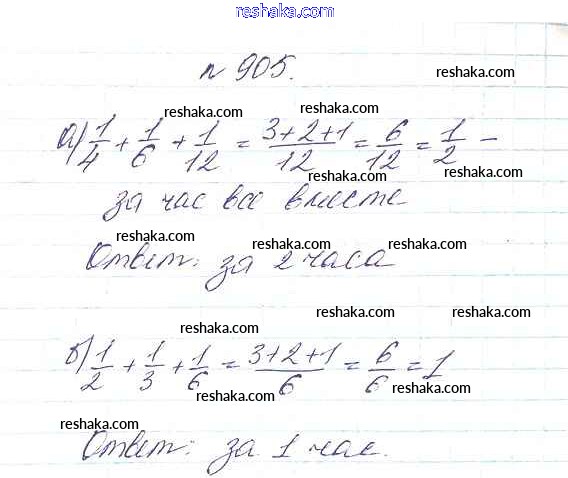 reshaka.com
n 905.
reshaka.com
reshaka.com reshaka.com
а) 1/4 + 1/6 + 1/12 = (3+2+1)/12 = 6/12 = 1/2 -
reshaka.com
reshaka.com reshaka.com
за час все вместе
reshaka.com reshaka.com reshaka.com
Ответ: за 2 часа
reshaka.com reshaka.com
reshaka.com
б) 1/2 + 1/3 + 1/6 = (3+2+1)/6 = 6/6 = 1
reshaka.com reshaka.com
reshaka.com
Ответ: за 1 час.
reshaka.com reshaka.com